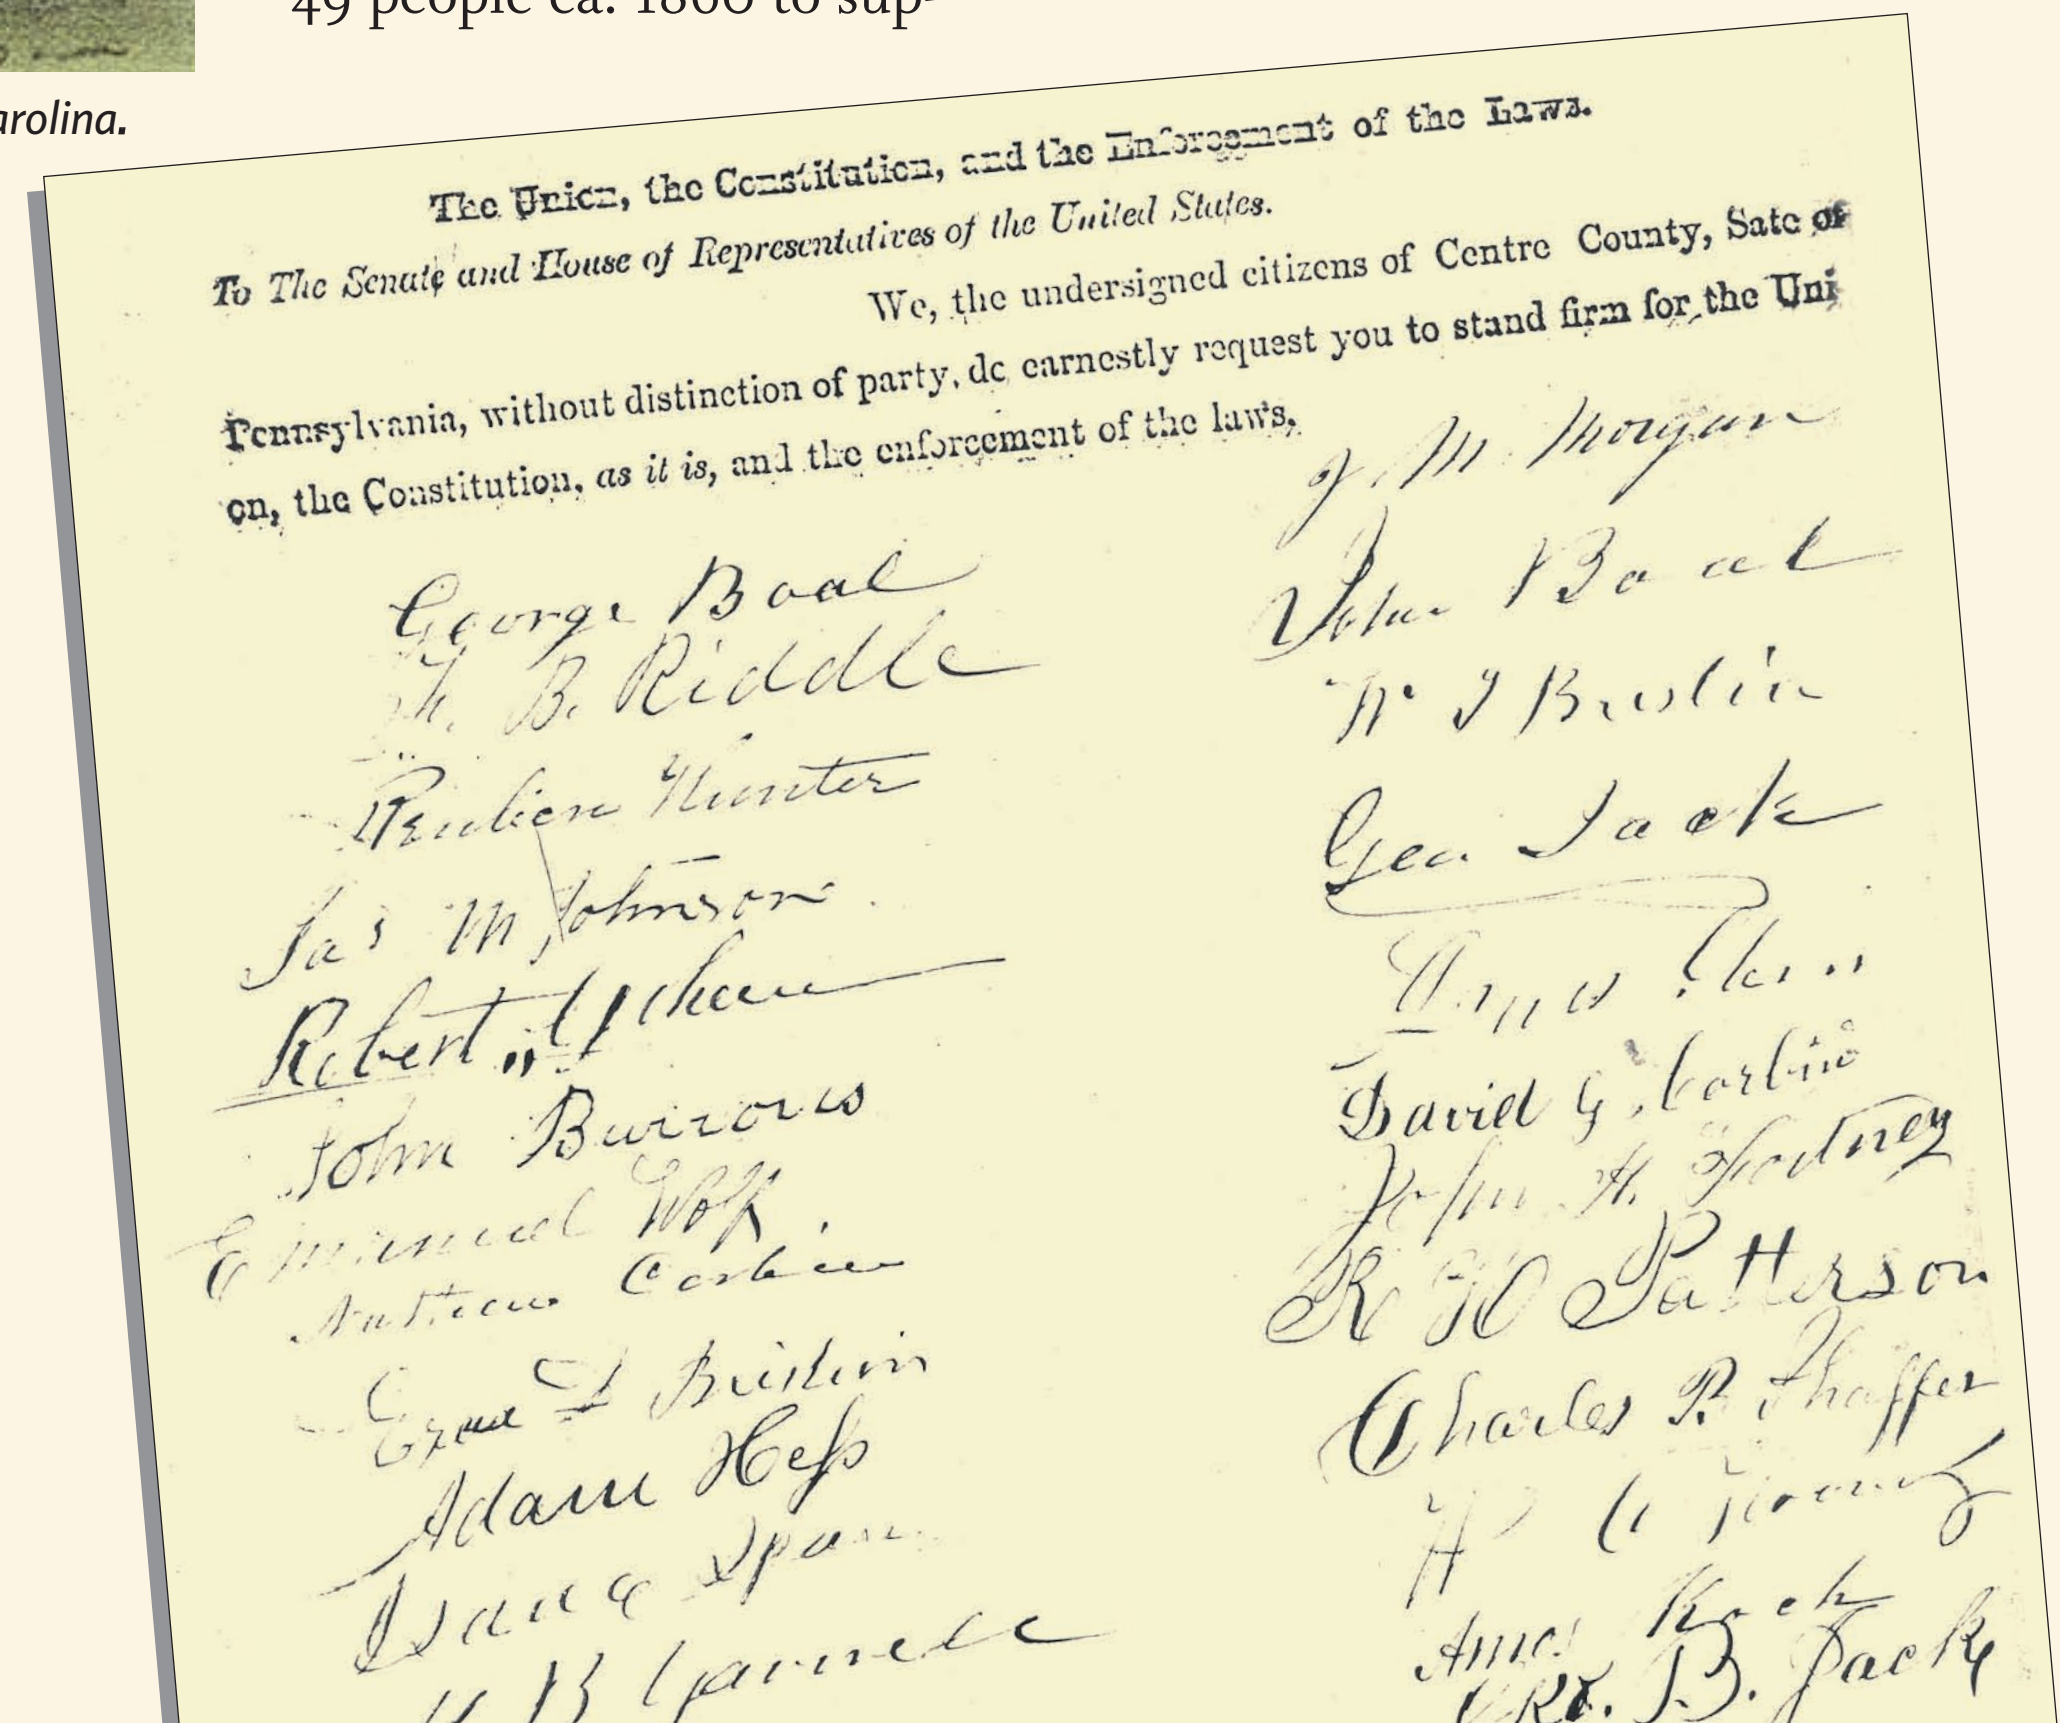 49 people ca. 1860 to sup-
arolina.
The Union, the Constitution, and the Enforcement of the Laws.
To The Senate and House of Representatives of the United States.
We, the undersigned citizens of Centre County, Sate of
Pennsylvania, without distinction of party, do earnestly request you to stand firm for the Uni
on, the Constitution, as it is, and the enforcement of the laws,
George Boal
B. Riddle
Reuben Hunter
Jas M Johnson
Robert
John Burrows
Emanuel Wolf
Corbin
Adam Hess
Isaac
B
J. M. Morgan
John Boal
Wm J Breslin
Geo Jack
David G. Corbin
John H.
R H Patterson
Charles B. Shaffer
Amos Koch
B. Jack